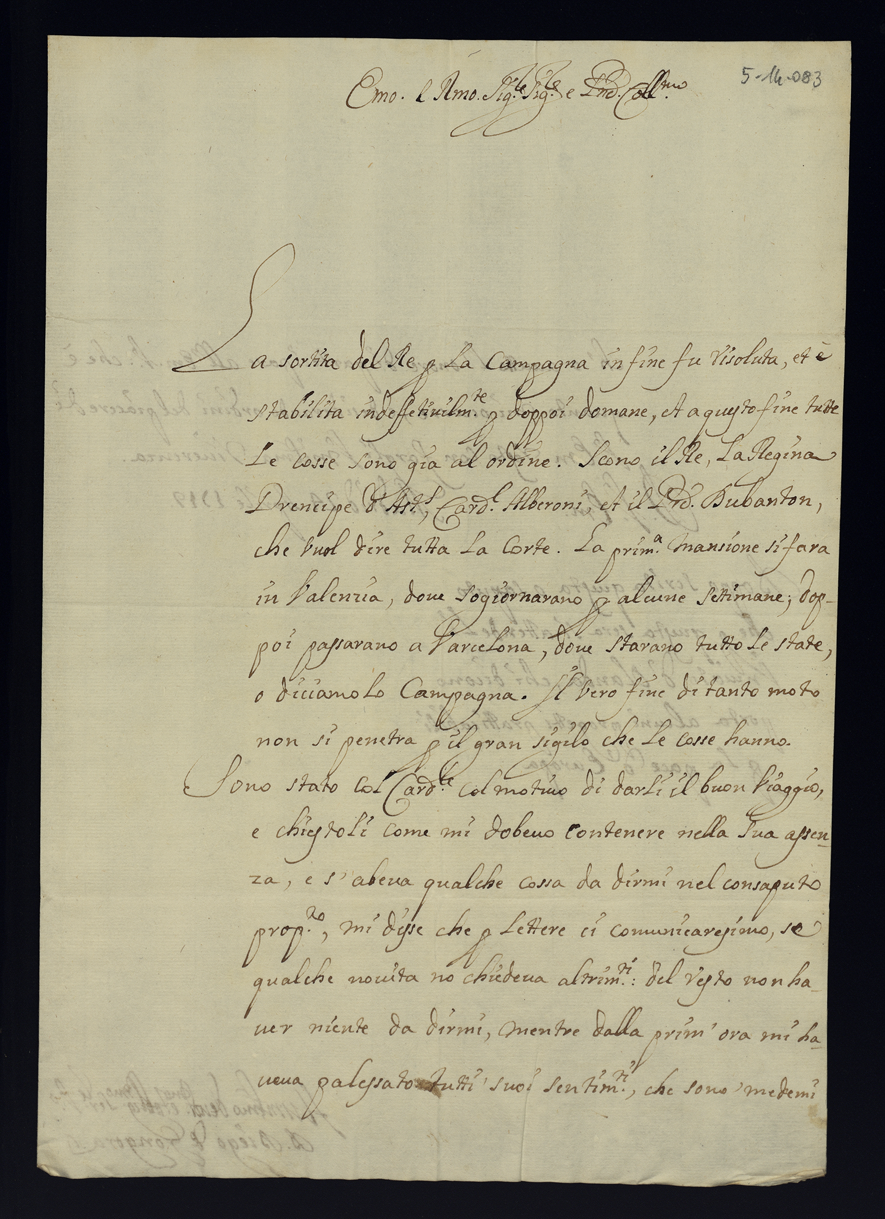 5-14-083
Emo. e Rmo. Sig.re Sig.re e Prd. Coll.mo
La sortita del Re p La Campagna in fine fu risoluta, et è
stabilita indeffetivilm.te p doppoi domane, et a questo fine tutte
Le cosse sono gia al ordine. Scono il Re, La Regina
Prencipe d'Ast.s, Card.l Alberoni, et il Prd. Dubanton,
che vuol dire tutta La Corte. La prim.a Mansione si fara
in Valenzia, doue sogiornarano p alcune settimane; dop-
poi passarano a Varcelona, doue starano tutto Le state,
o diciamo Lo Campagna. Il vero fine di tanto moto
non si penetra p il gran sigilo che Le cosse hanno.
Sono stato col Card.le col motivo di darli il buon Viaggio,
e chiestoli come mi dobeuo contenere nella sua assen-
za, e s'abeua qualche cossa da dirmi nel consaputo
prop.to, mi disse che p Lettere ci comunicaressimo, se
qualche nouita no chiedeua altrim.ti: del resto non ha-
uer niente da dirmi, mentre dalla prim'ora mi ha-
ueua palessato tutti suoi sentim.ti, che sono medemi